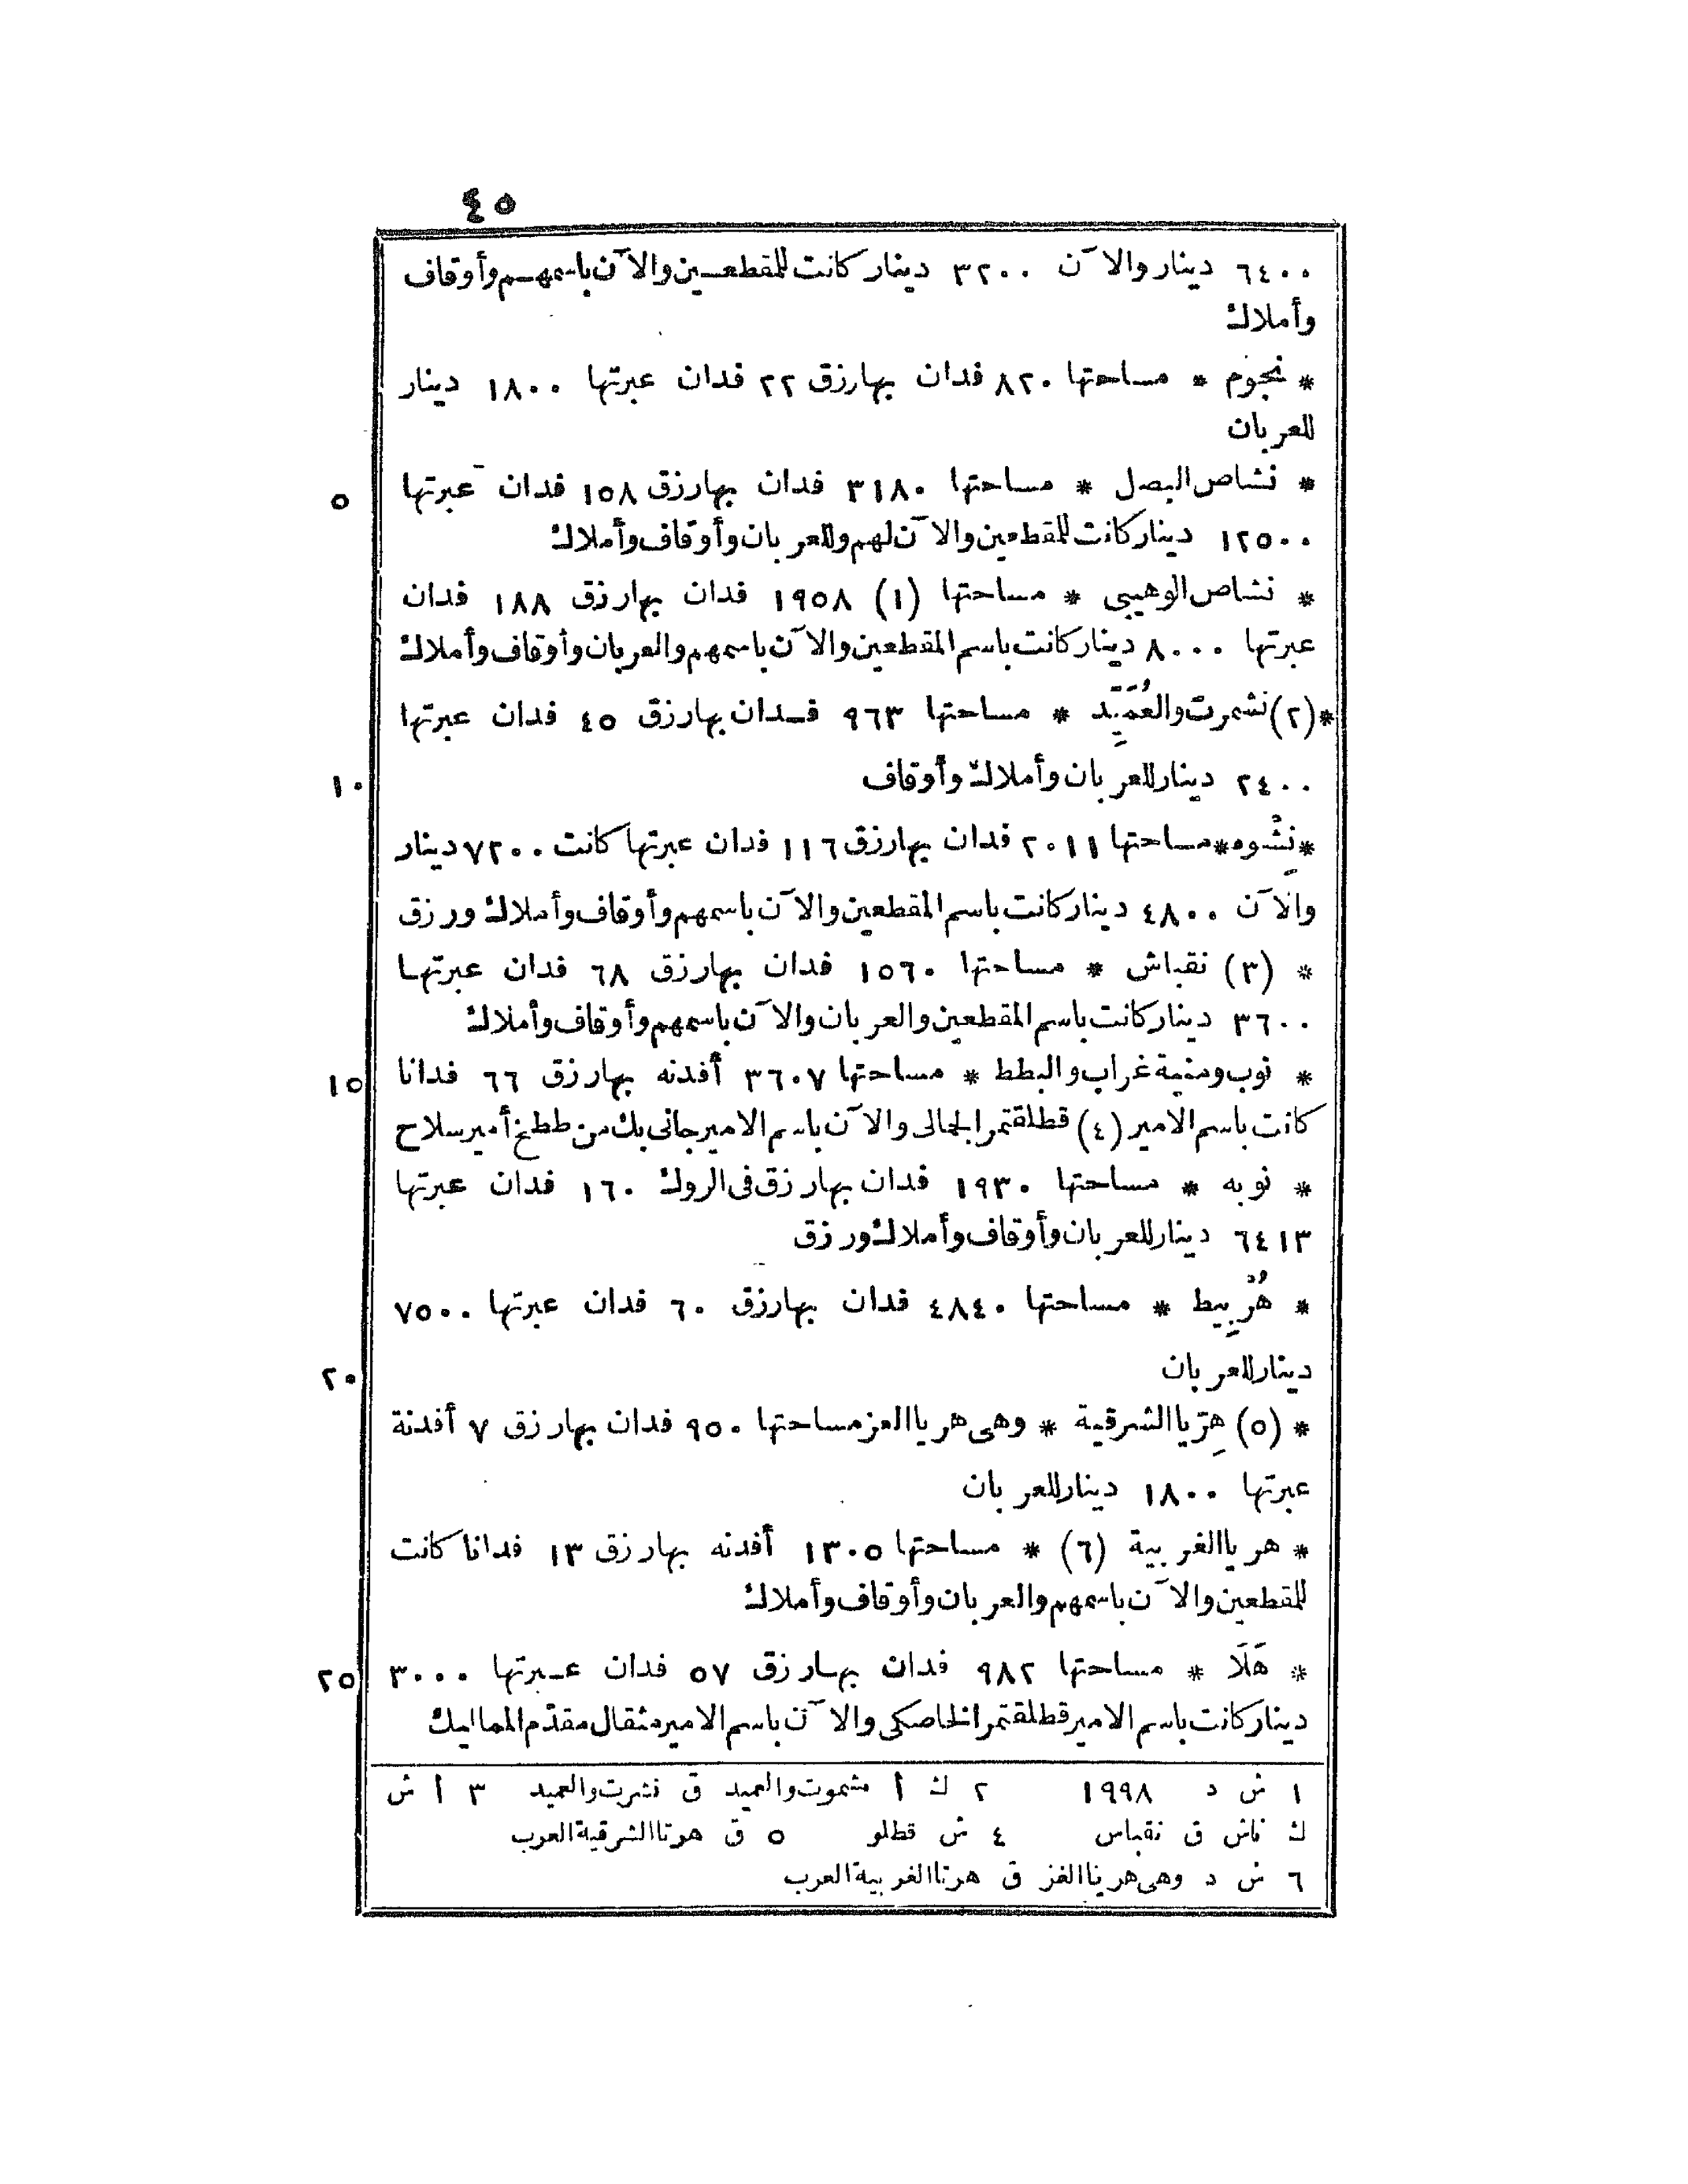 ٤٥
٦٤٠٠ دينار والآن ٣٢٠٠ دينار كانت للمقطعين والآن باسمهم وأوقاف
وأملاك
* نجوم * مساحتها ٨٢٠ فدان بها رزق ٢٢ فدان عبرتها ١٨٠٠ دينار
للعربان
* نشاص البصل * مساحتها ٣١٨٠ فدان بها رزق ١٥٨ فدان عبرتها
٥
١٢٥٠٠ دينار كانت للمقطعين والآن لهم وللعربان وأوقاف وأملاك
* نشاص الوهيبى * مساحتها (١) ١٩٥٨ فدان بها رزق ١٨٨ فدان
عبرتها ٨٠٠٠ دينار كانت باسم المقطعين والآن باسمهم والعربان وأوقاف وأملاك
* (٢) نشمرت والعُمَيِّد * مساحتها ٩٦٣ فدان بها رزق ٤٥ فدان عبرتها
٢٤٠٠ دينار للعربان وأملاك وأوقاف
١٠
* نِشْوه * مساحتها ٢٠١١ فدان بها رزق ١١٦ فدان عبرتها كانت ٧٢٠٠ دينار
والآن ٤٨٠٠ دينار كانت باسم المقطعين والآن باسمهم وأوقاف وأملاك ورزق
* (٣) نقباش * مساحتها ١٥٦٠ فدان بها رزق ٦٨ فدان عبرتها
٣٦٠٠ دينار كانت باسم المقطعين والعربان والآن باسمهم وأوقاف وأملاك
* نوب ومنية غراب والبطط * مساحتها ٣٦٠٧ أفدنه بها رزق ٦٦ فدانا
١٥
كانت باسم الامير (٤) قطلقتمر الجالى والآن باسم الامير جانى بك من ططخ أمير سلاح
* نوبه * مساحتها ١٩٣٠ فدان بها رزق فى الروك ١٦٠ فدان عبرتها
٦٤١٣ دينار للعربان وأوقاف وأملاك ورزق
* هُرْبِيط * مساحتها ٤٨٤٠ فدان بها رزق ٦٠ فدان عبرتها ٧٥٠٠
دينار للعربان
٢٠
* (٥) هِرّيا الشرقية * وهى هريا العز مساحتها ٩٥٠ فدان بها رزق ٧ أفدنة
عبرتها ١٨٠٠ دينار للعربان
* هريا الغربية (٦) * مساحتها ١٣٠٥ أفدنه بها رزق ١٣ فدانا كانت
للمقطعين والآن باسمهم والعربان وأوقاف وأملاك
* هَلَا * مساحتها ٩٨٢ فدان بها رزق ٥٧ فدان عبرتها ٣٠٠٠
٢٥
دينار كانت باسم الامير قطلقتمر الخاصكى والآن باسم الامير مثقال مقدّم المماليك
١ ش د ١٩٩٨ ٢ ك أ مشموت والعميد ق نشرت والعميد ٣ أ ش
ك ناش ق نقباس ٤ ش قطلو ٥ ق هرتا الشرقية العرب
٦ ش د وهى هرينا الغز ق هرتا الغربية العرب